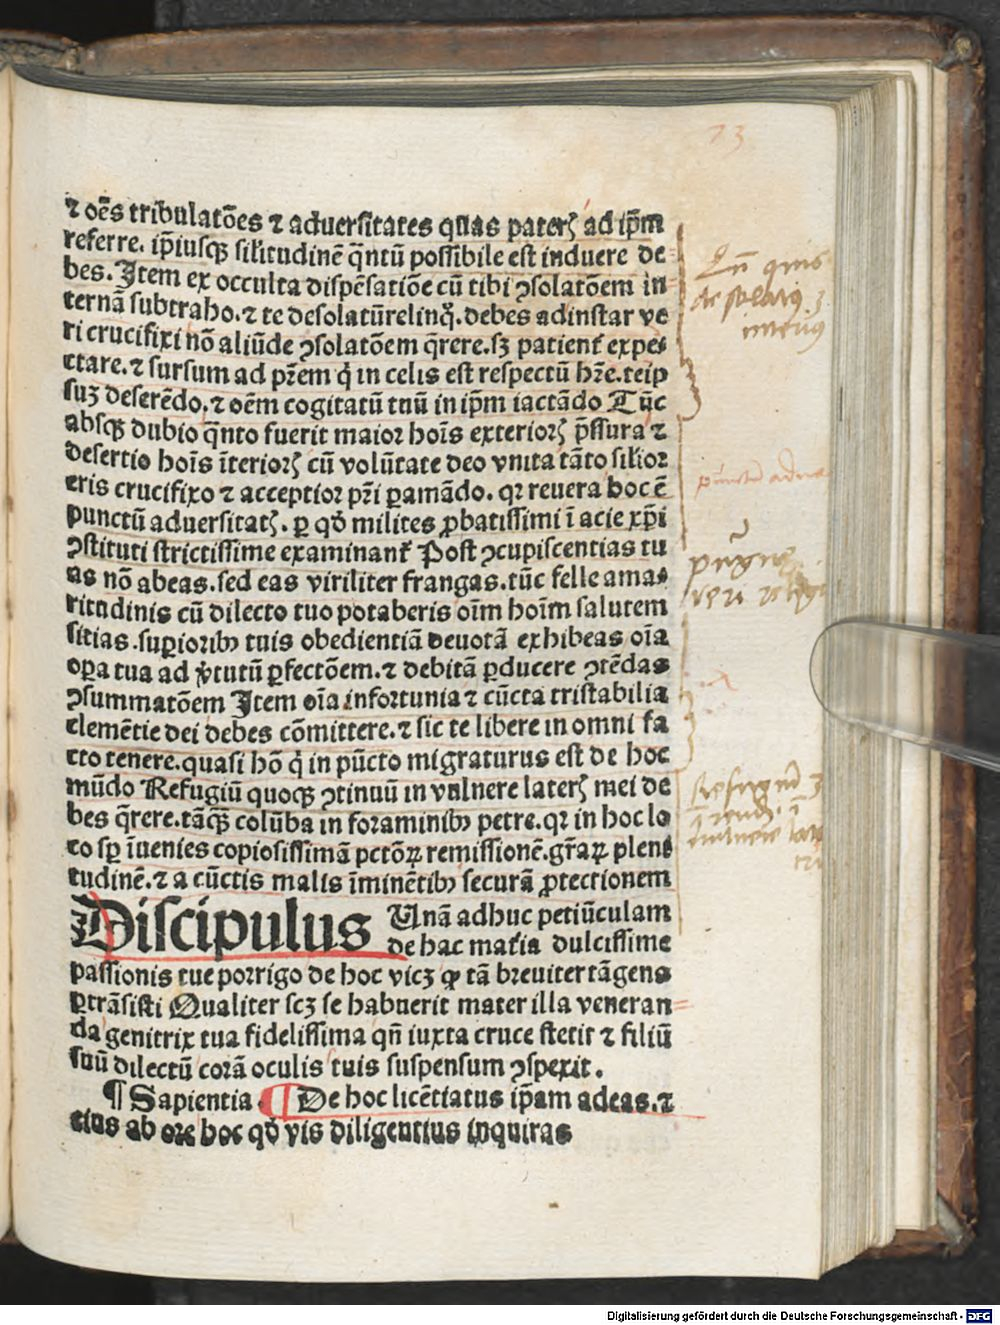 73
⁊ oēs tribulatōes ⁊ aduersitates quas paterꝭ ad ip̄m
referre. ip̄iusqꝫ silitudinē q̄ntū possibile est induere de
bes. Item ex occulta dispēsatiōe cū tibi ꝯsolatōem in
ternā subtraho. ⁊ te desolatū relinq̄. debes ad instar ve
ri crucifixi nō aliūde ꝯsolatōem q̄rere. sꝫ patient̄ expe-
ctare. ⁊ sursum ad pr̄em q̇ in celis est respectū hr̄e. teip
suꝫ deserēdo. ⁊ oēm cogitatū tuū in ip̄m iactādo Tūc
absqꝫ dubio q̄nto fuerit maior hoīs exteriorꝭ p̄ssura ⁊
desertio hoīs īteriorꝭ cū volūtate deo vnita tāto silior
eris crucifixo ⁊ acceptior pr̄i ꝑamādo. qꝛ reuera hoc ē
punctū aduersitatꝭ. ꝑ qḋ milites ꝓbatissimi ī acie xp̄i
ꝯstituti strictissime examinant̄ Post ꝯcupiscentias tu
as nō abeas. sed eas viriliter frangas. tūc felle ama-
ritudinis cū dilecto tuo potaberis oīm hoīm salutem
sitias. suꝑioribꝰ tuis obedientiā deuotā exhibeas oīa
oꝑa tua ad v̇tutū ꝑfectōem. ⁊ debitā ꝑducere ꝯtēdas
ꝯsummatōem Item oīa infortunia ⁊ cūcta tristabilia
clemētie dei debes cōmittere. ⁊ sic te libere in omni fa
cto tenere. quasi hō q̇ in pūcto migraturus est de hoc
mūdo Refugiū quoqꝫ ꝯtinuū in vulnere laterꝭ mei de
bes q̄rere. tāqꝫ colūba in foraminibꝰ petre. qꝛ in hoc lo
co sꝑ īuenies copiosissimā pctōꝝ remissionē. gr̄aꝝ pleni
tudinē. ⁊ a cūctis malis īminētibꝰ securā ꝓtectionem
Discipulus Unā adhuc petiūculam
de hac mat̄ia dulcissime
passionis tue porrigo de hoc vicꝫ ꝙ tā breuiter tāgens
ꝑtrāsisti Qualiter scꝫ se habuerit mater illa veneran
da genitrix tua fidelissima qn̄ iuxta cruce stetit ⁊ filiū
suū dilectū corā oculis tuis suspensum ꝯspexit.
¶ Sapientia. ¶ De hoc licētiatus ip̄am adeas. ⁊
eius ab ore hoc qḋ vis diligentius inquiras
Digitalisierung gefördert durch die Deutsche Forschungsgemeinschaft - DFG